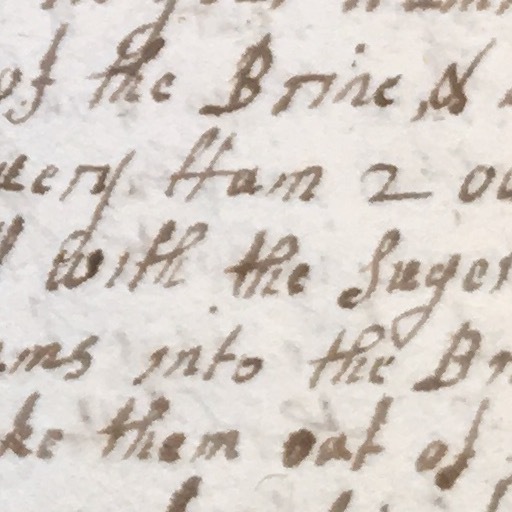 of the Brine, &
uery Ham 2
with the Suger
ams into the Br
ke them out of